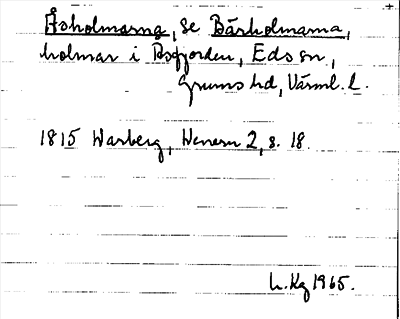 Åsholmarna, se Bärholmarna,
holmar i Åsfjorden, Eds sn,
Grums hd, Värml. l.
1815 Warberg, Wenern 2, s. 18.
L. Kg 1965.